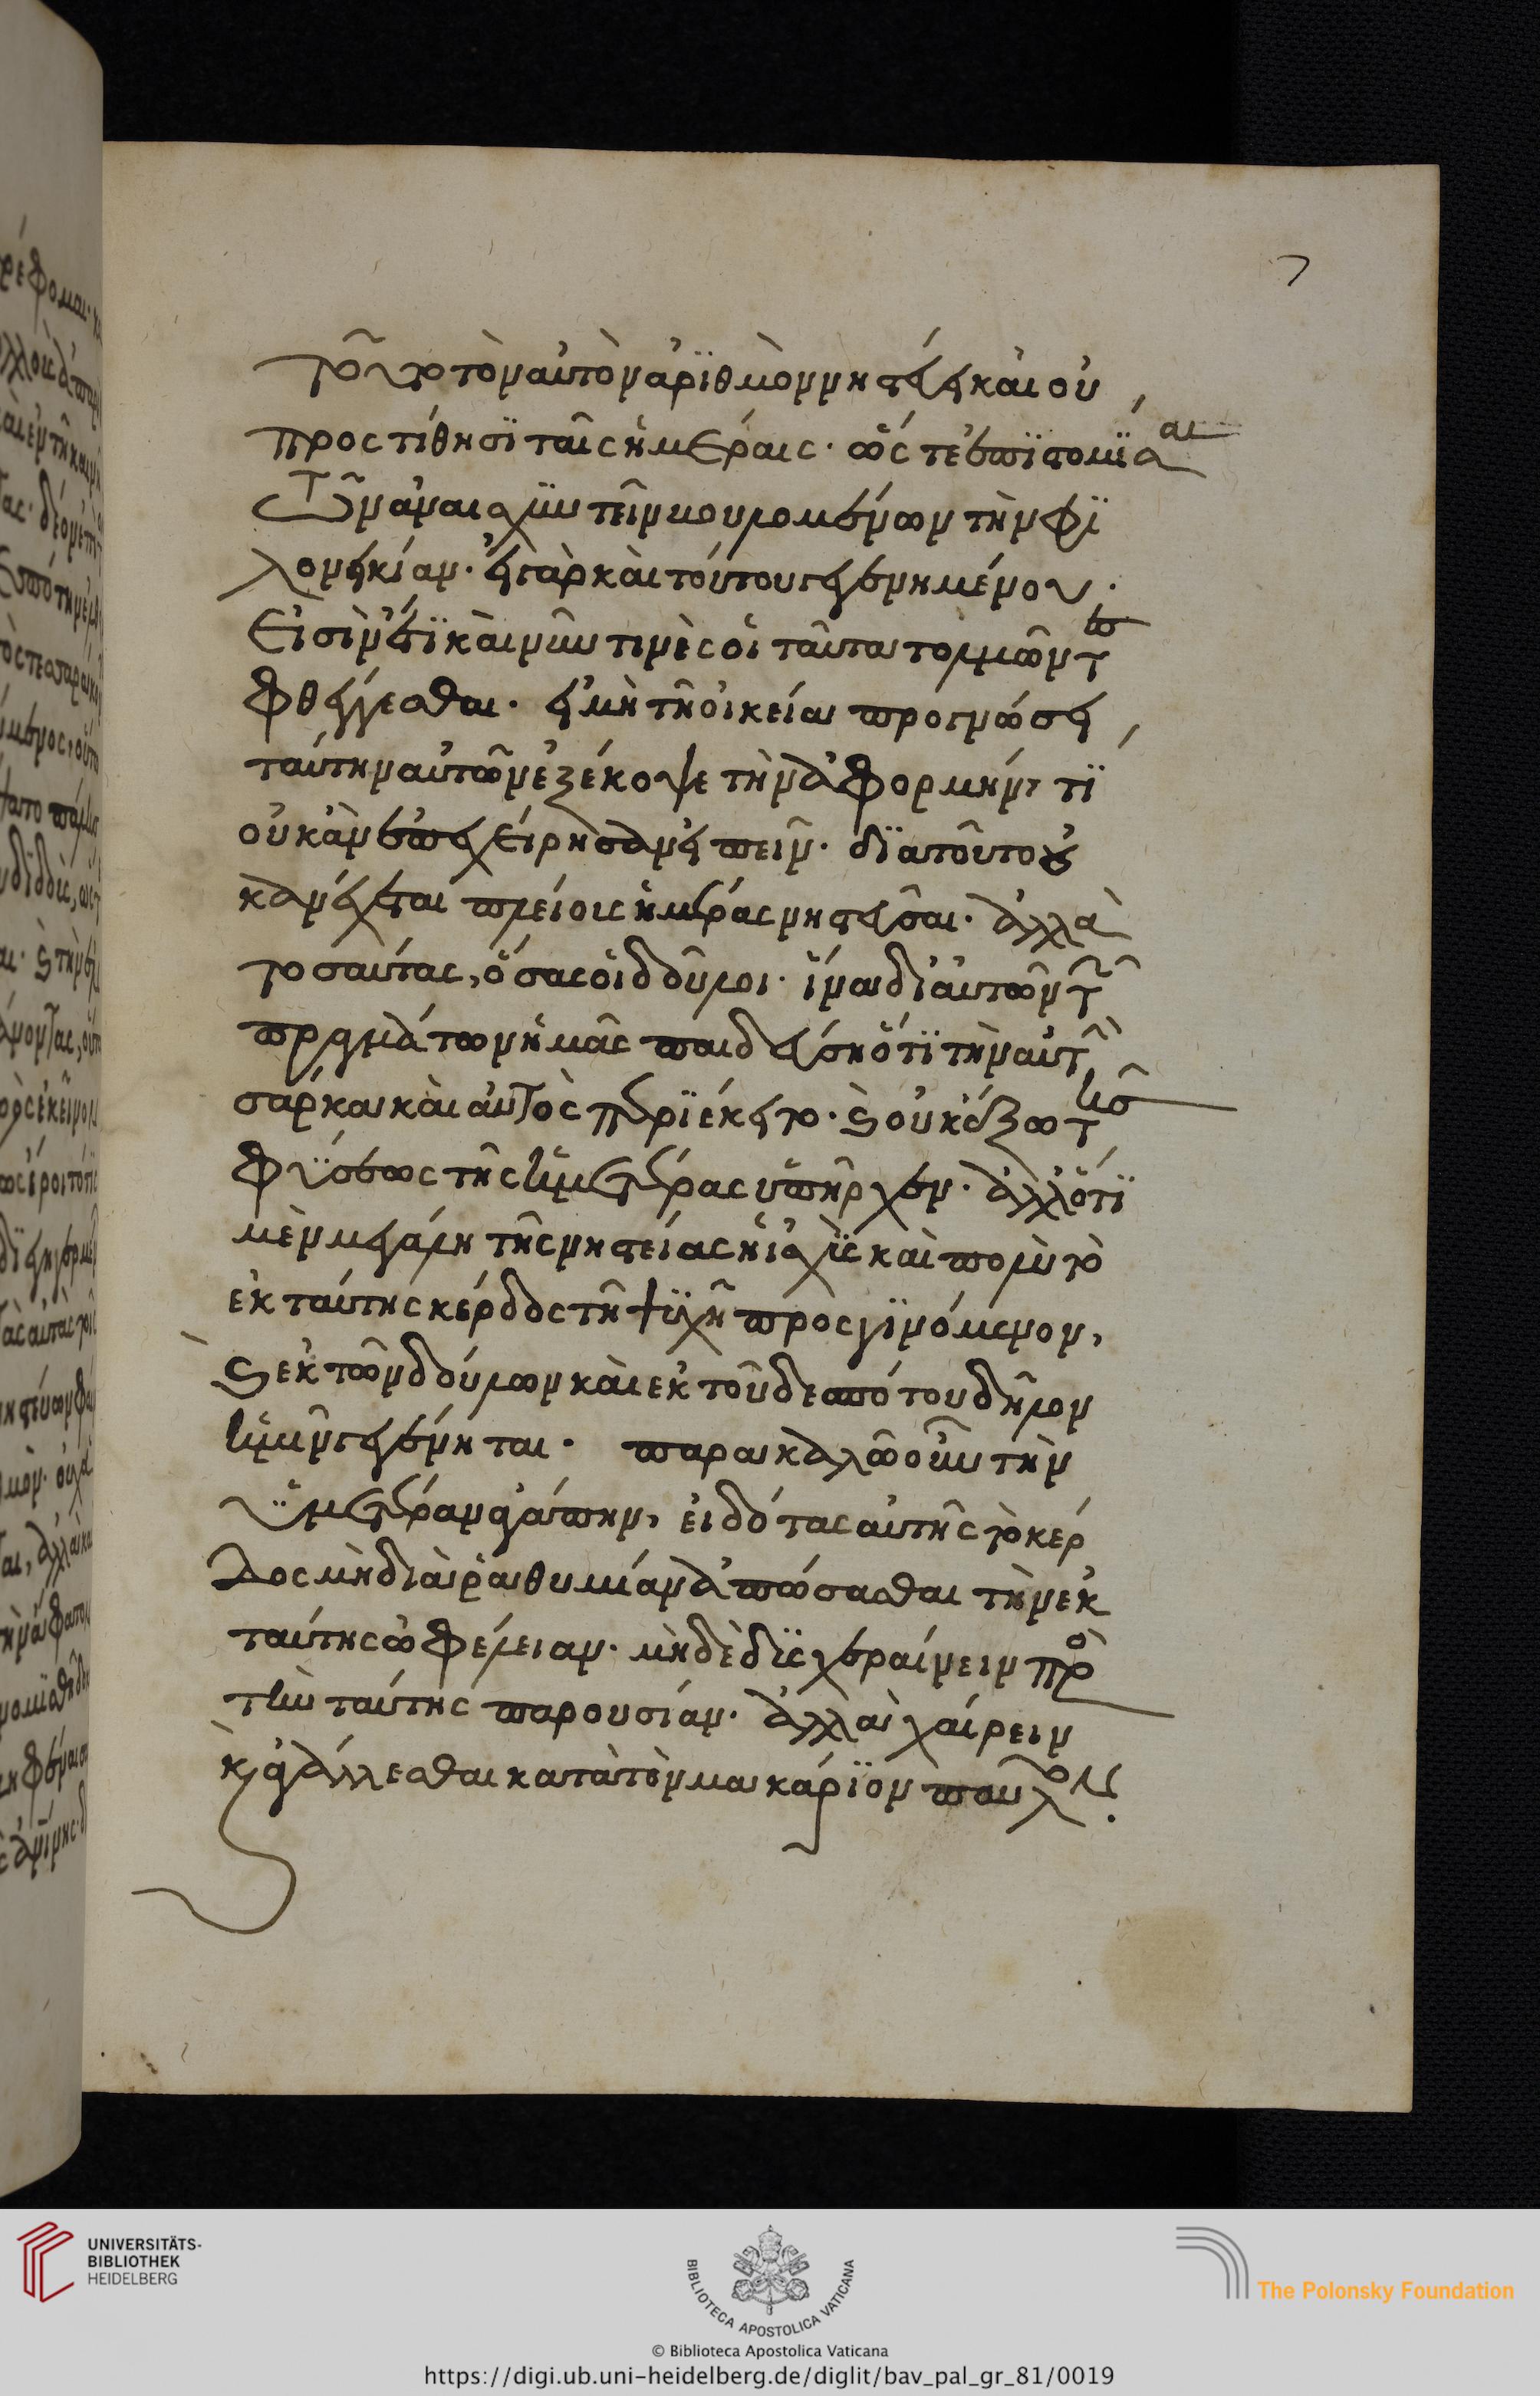 7
τοῦτο τὸν αὐτὸν ἀριθμὸν νηστεύει καὶ οὐ
προστίθησι ταῖς ἡμέραις· ὥστε ἐπιστομίσαι
τῶν ἀναισχυντεῖν βουλομένων τὴν φι
λονεικίαν· εἰ γὰρ καὶ τούτου γεγενημένου·
εἰσὶν ἔτι καὶ νῦν τινὲς οἱ ταῦτα τολμῶντες
φθέγγεσθαι· εἰ μὴ τῇ οἰκεία προγνώσει
ταύτην αὐτῶν ἐξέκοψε τὴν ἀφορμήν, τί
οὐκ ἂν ἐπεχείρησαν εἰπεῖν· διατοῦτο οὐ
κ ἀνέχεται πλείους ἡμέρας νηστεῦσαι· ἀλλὰ
τοσαύτας, ὅσας οἱ δοῦλοι· ἵνα δι' αὐτῶν τῶν
πραγμάτων ἡμᾶς παιδεύση ὅτι τὴν αὐτὴν
σάρκα καὶ αὐτὸς περιέκειτο· καὶ οὐκ ἔξω τῆς
φύσεως τῆς ἡμετέρας ὑπῆρχεν· ἀλλ' ὅτι
μὲν μεγάλη τῆς νηστείας ἡ ἰσχὺς καὶ πολὺ τὸ
ἐκ ταύτης κέρδος τῇ ψυχῇ προσγινόμενον,
καὶ ἐκ τῶν δούλων καὶ ἐκ τοῦ δεσπότου δῆλον
ἡμῖν γεγένηται· παρακαλῶ οὖν τὴν
ὑμετέραν ἀγάπην, εἰδότας αὐτῆς τὸ κέρ
δος μὴ διὰ ῥαθυμίαν ἀπώσασθαι τὴν ἐκ
ταύτης ὠφέλειαν· μὴδὲ δυσχεραίνειν πρὸς
τὴν ταύτης παρουσίαν· ἀλλὰ χαίρειν
καὶ ἀγάλλεσθαι κατὰ τὸν μακάριον παῦλον.
UNIVERSITÄTS-
BIBLIOTHEK
HEIDELBERG
BIBLIOTECA APOSTOLICA VATICANA
The Polonsky Foundation
© Biblioteca Apostolica Vaticana
https://digi.ub.uni-heidelberg.de/diglit/bav_pal_gr_81/0019